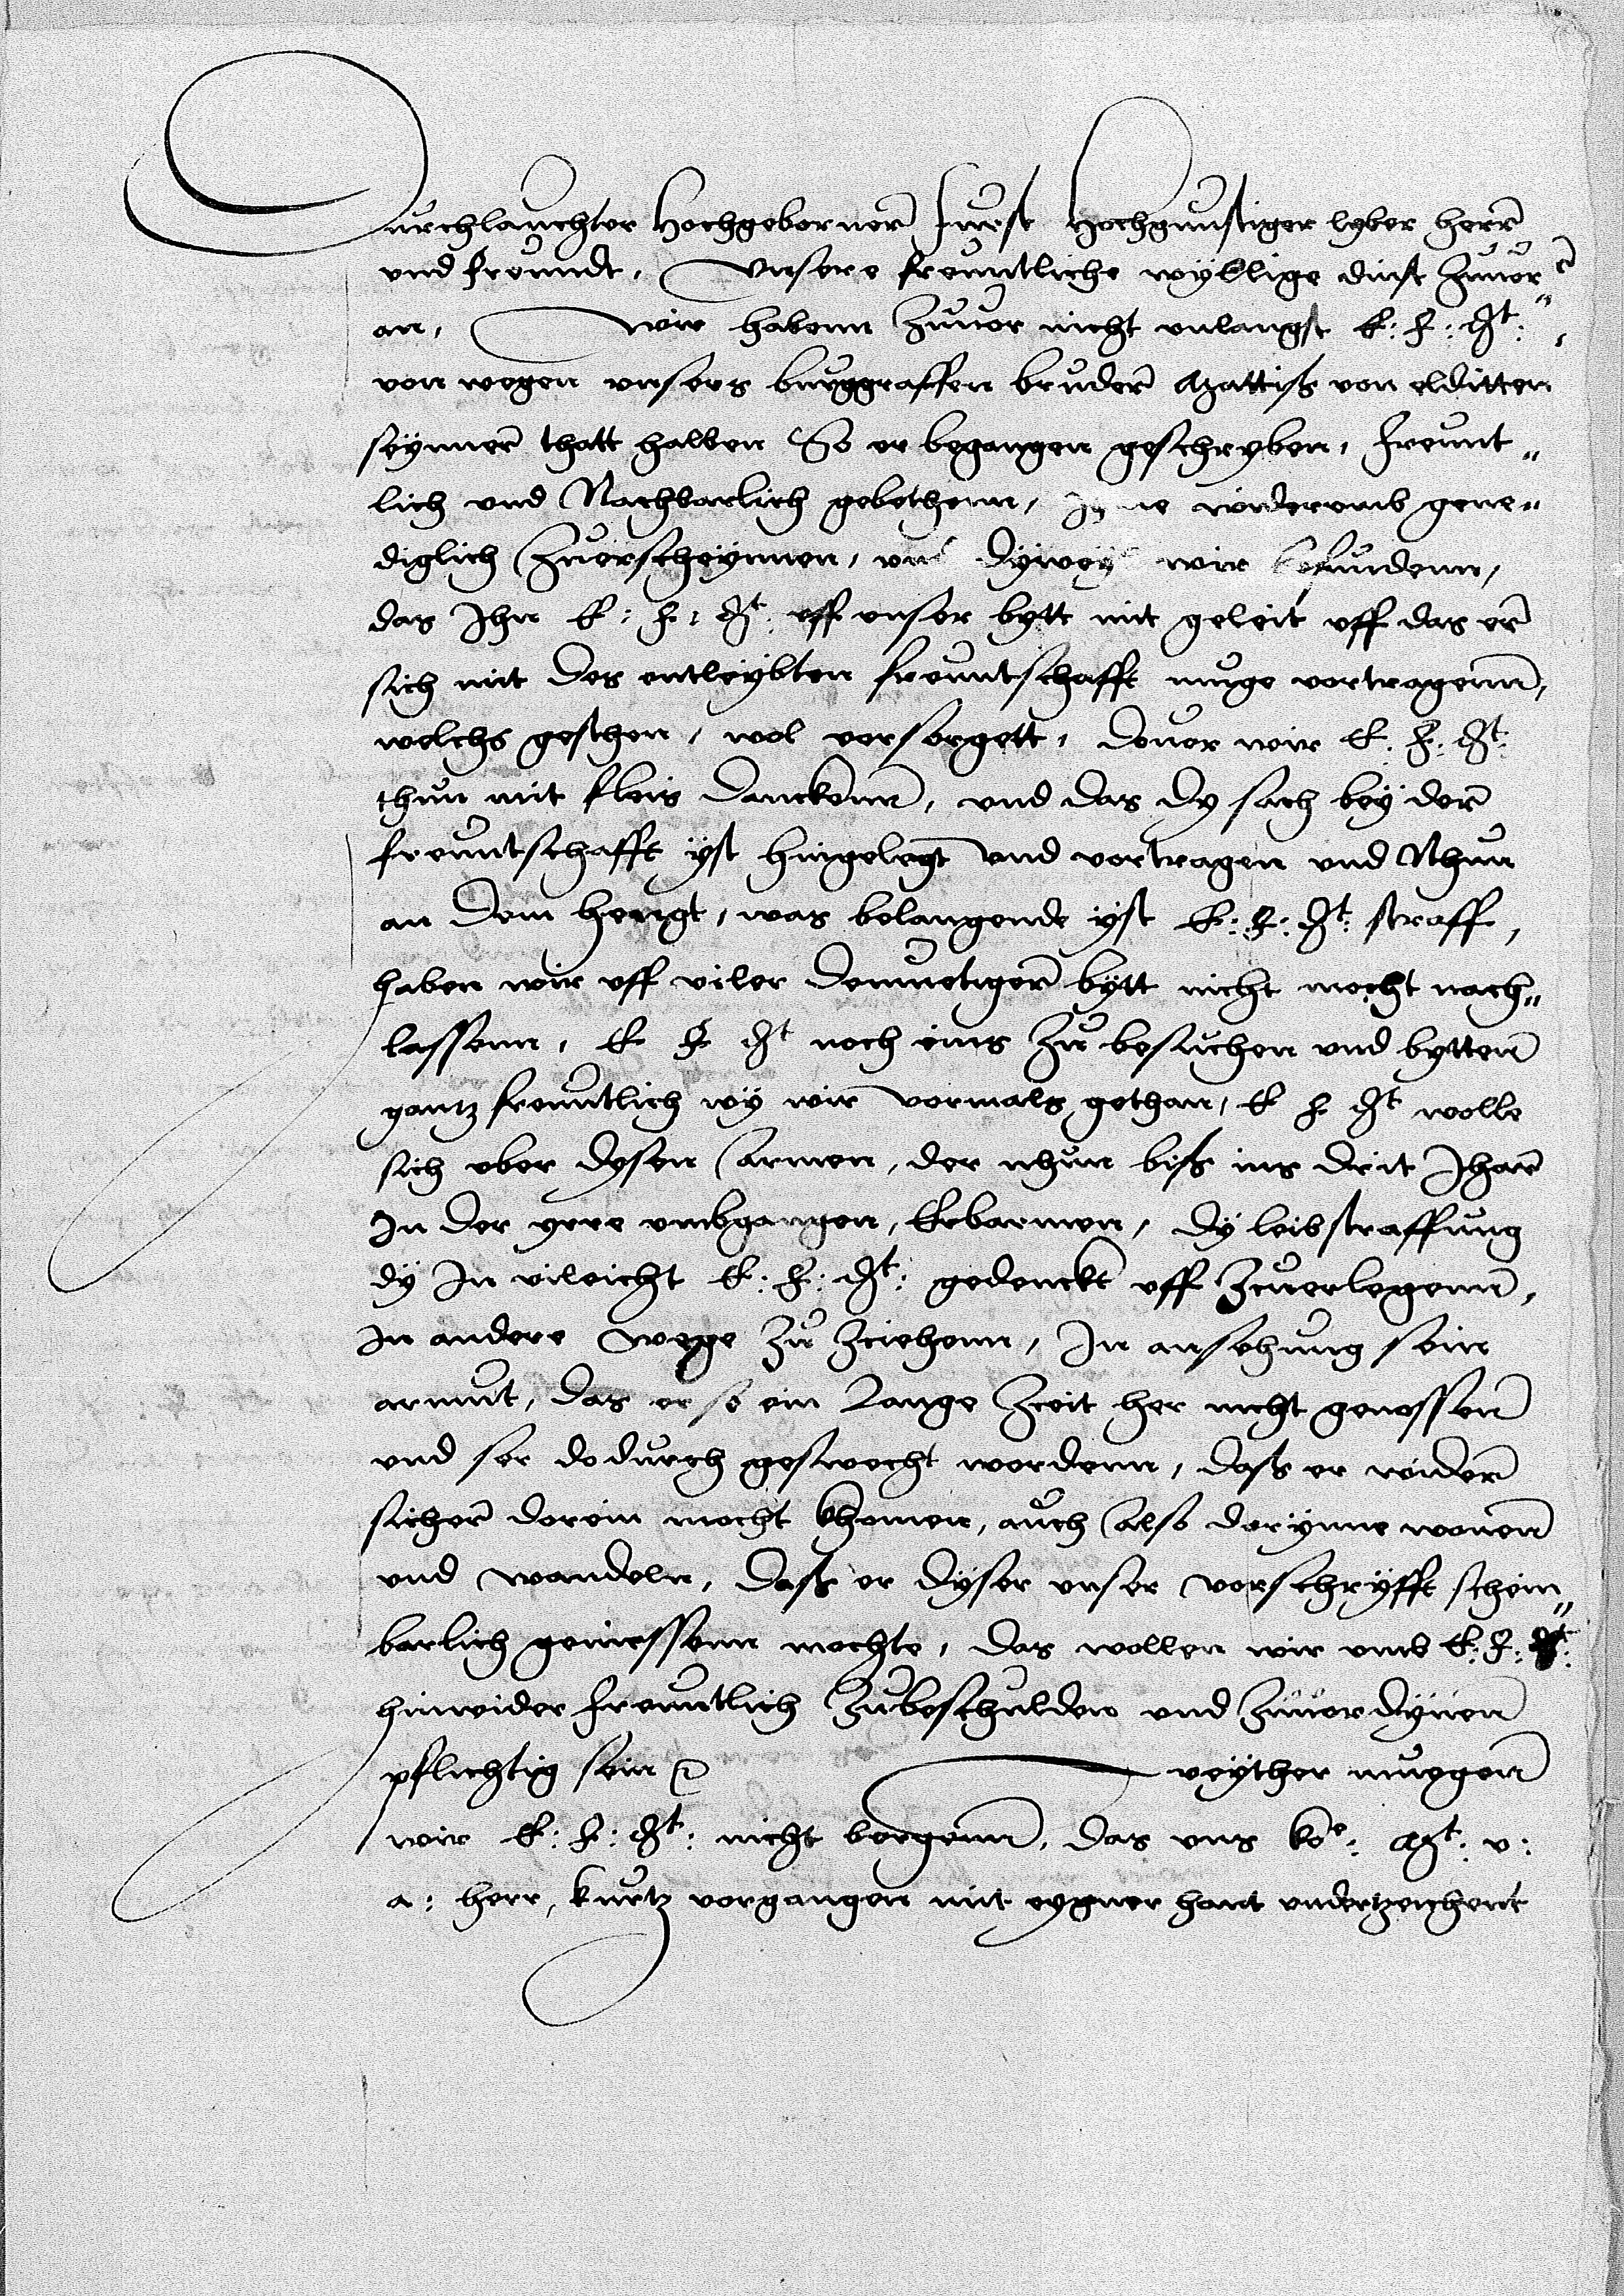 Durchlauchter Hochgeborner Furst Hochgunstiger lyber herr
und freundt, Unsere freuntliche wyllige dinst zuuor„
an, Wir habenn zuuor nicht unlangst E: F: Dt:,
von wegen unsers burggraffen bruder Mattiß von elditten
seynner thatt halben So er begangen geschryben, freunt„
lich und Nachbarlich gebethenn, widerumb gene„
diglich zuerscheynnen, und dywey wir befundenn,
das Ihn E: F: Dt: uff unser bytt mit geleit uff das er
sich mit des entleybten freuntschafft muge vortragenn,
welchs geschen, wol vorsorgett, douor wir E. F. Dt:
thun mit fleis danckenn, und das dy sach bey der
freuntschafft yst hingelegt und vortragen und Nhun
an dem hengt, was belangende yst E: F: Dt: straff,
haben wir uff viler demuetiger bytt nicht mocht nach„
lassenn, E F Dt noch eins zu besuchen und bytten
gantz freuntlich wy wir vormals gethan, E F Dt wolle
sich uber dysen armen, der nhun biß ins drit Ihar
In der yrre umbgangen, Erbarmen, dy leibstraffung
dy In vileicht E: F: Dt: gedenckt uff zcuerlegenn,
In andere wege zu zciehenn, In ansehung sein
armut, das er so ein lange zceit her nicht genossen
und ser dodurch geswecht wordenn, daß er wider
sicher dorein mocht khomen, auch also darynne wonen
und wandeln, daß er dyser unser vorschryfft schein„
barlich geniessenn mochte, das wollen wir umb E: F: Dt:
hinwider freuntlich zubeschulden und zuuordynen
pflichtig sein weyther muegen
wir E: F: Dt: nicht bergenn, das uns ko: Mt: u:
a: herr, kurtz vorgangen mit eygner hant undertzeichent